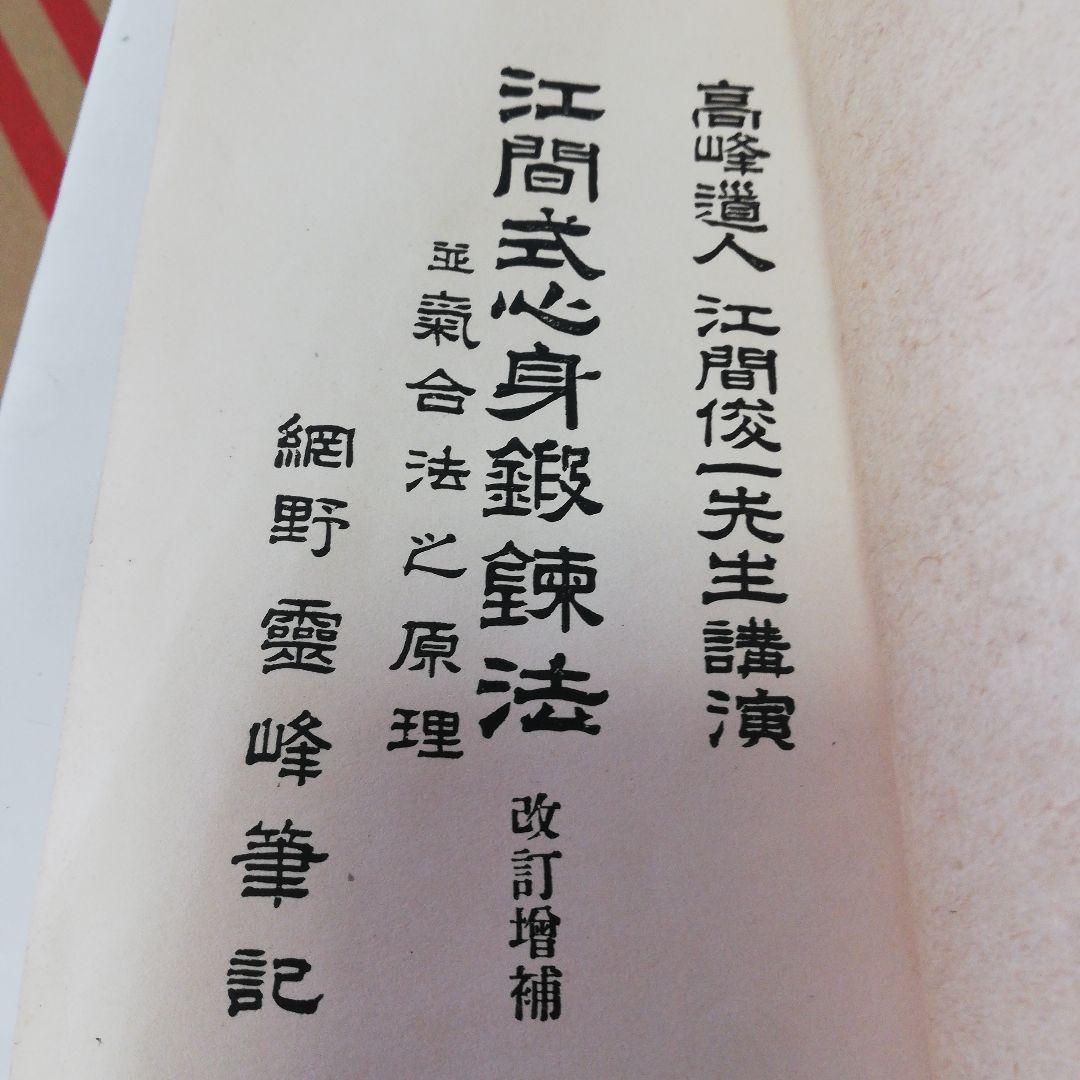 高峰道人 江間俊一先生講演
江間式心身鍛鍊法 改訂增補
並氣合法之原理
網野靈峰筆記